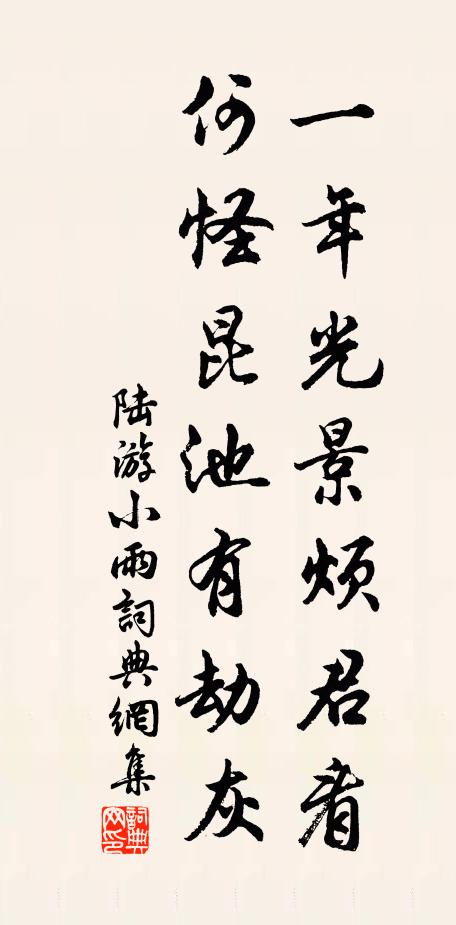 一年光景烦君看
何怪昆池有劫灰
陆游小雨詞典網集
詞典网印